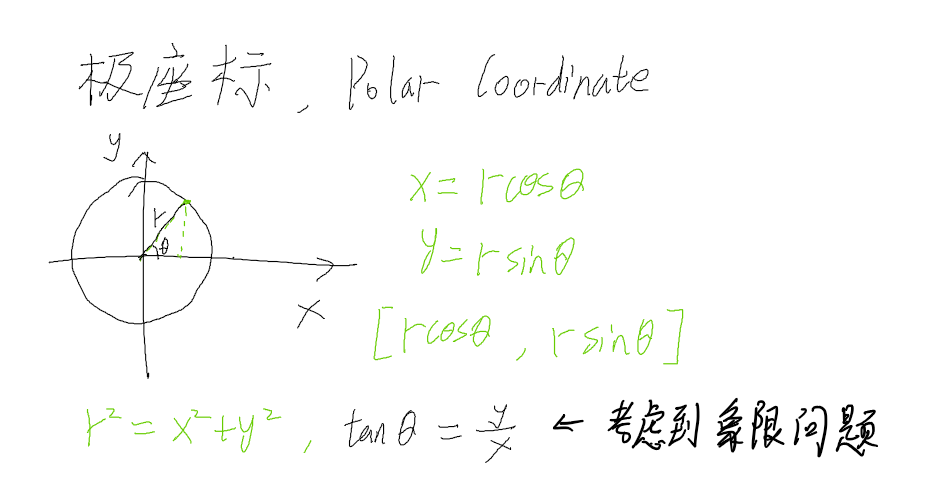 极座标, Polar Coordinate
y
r
θ
x
x = rcosθ
y = rsinθ
[rcosθ, rsinθ]
r² = x²+y², tanθ = y/x ← 考虑到象限问题